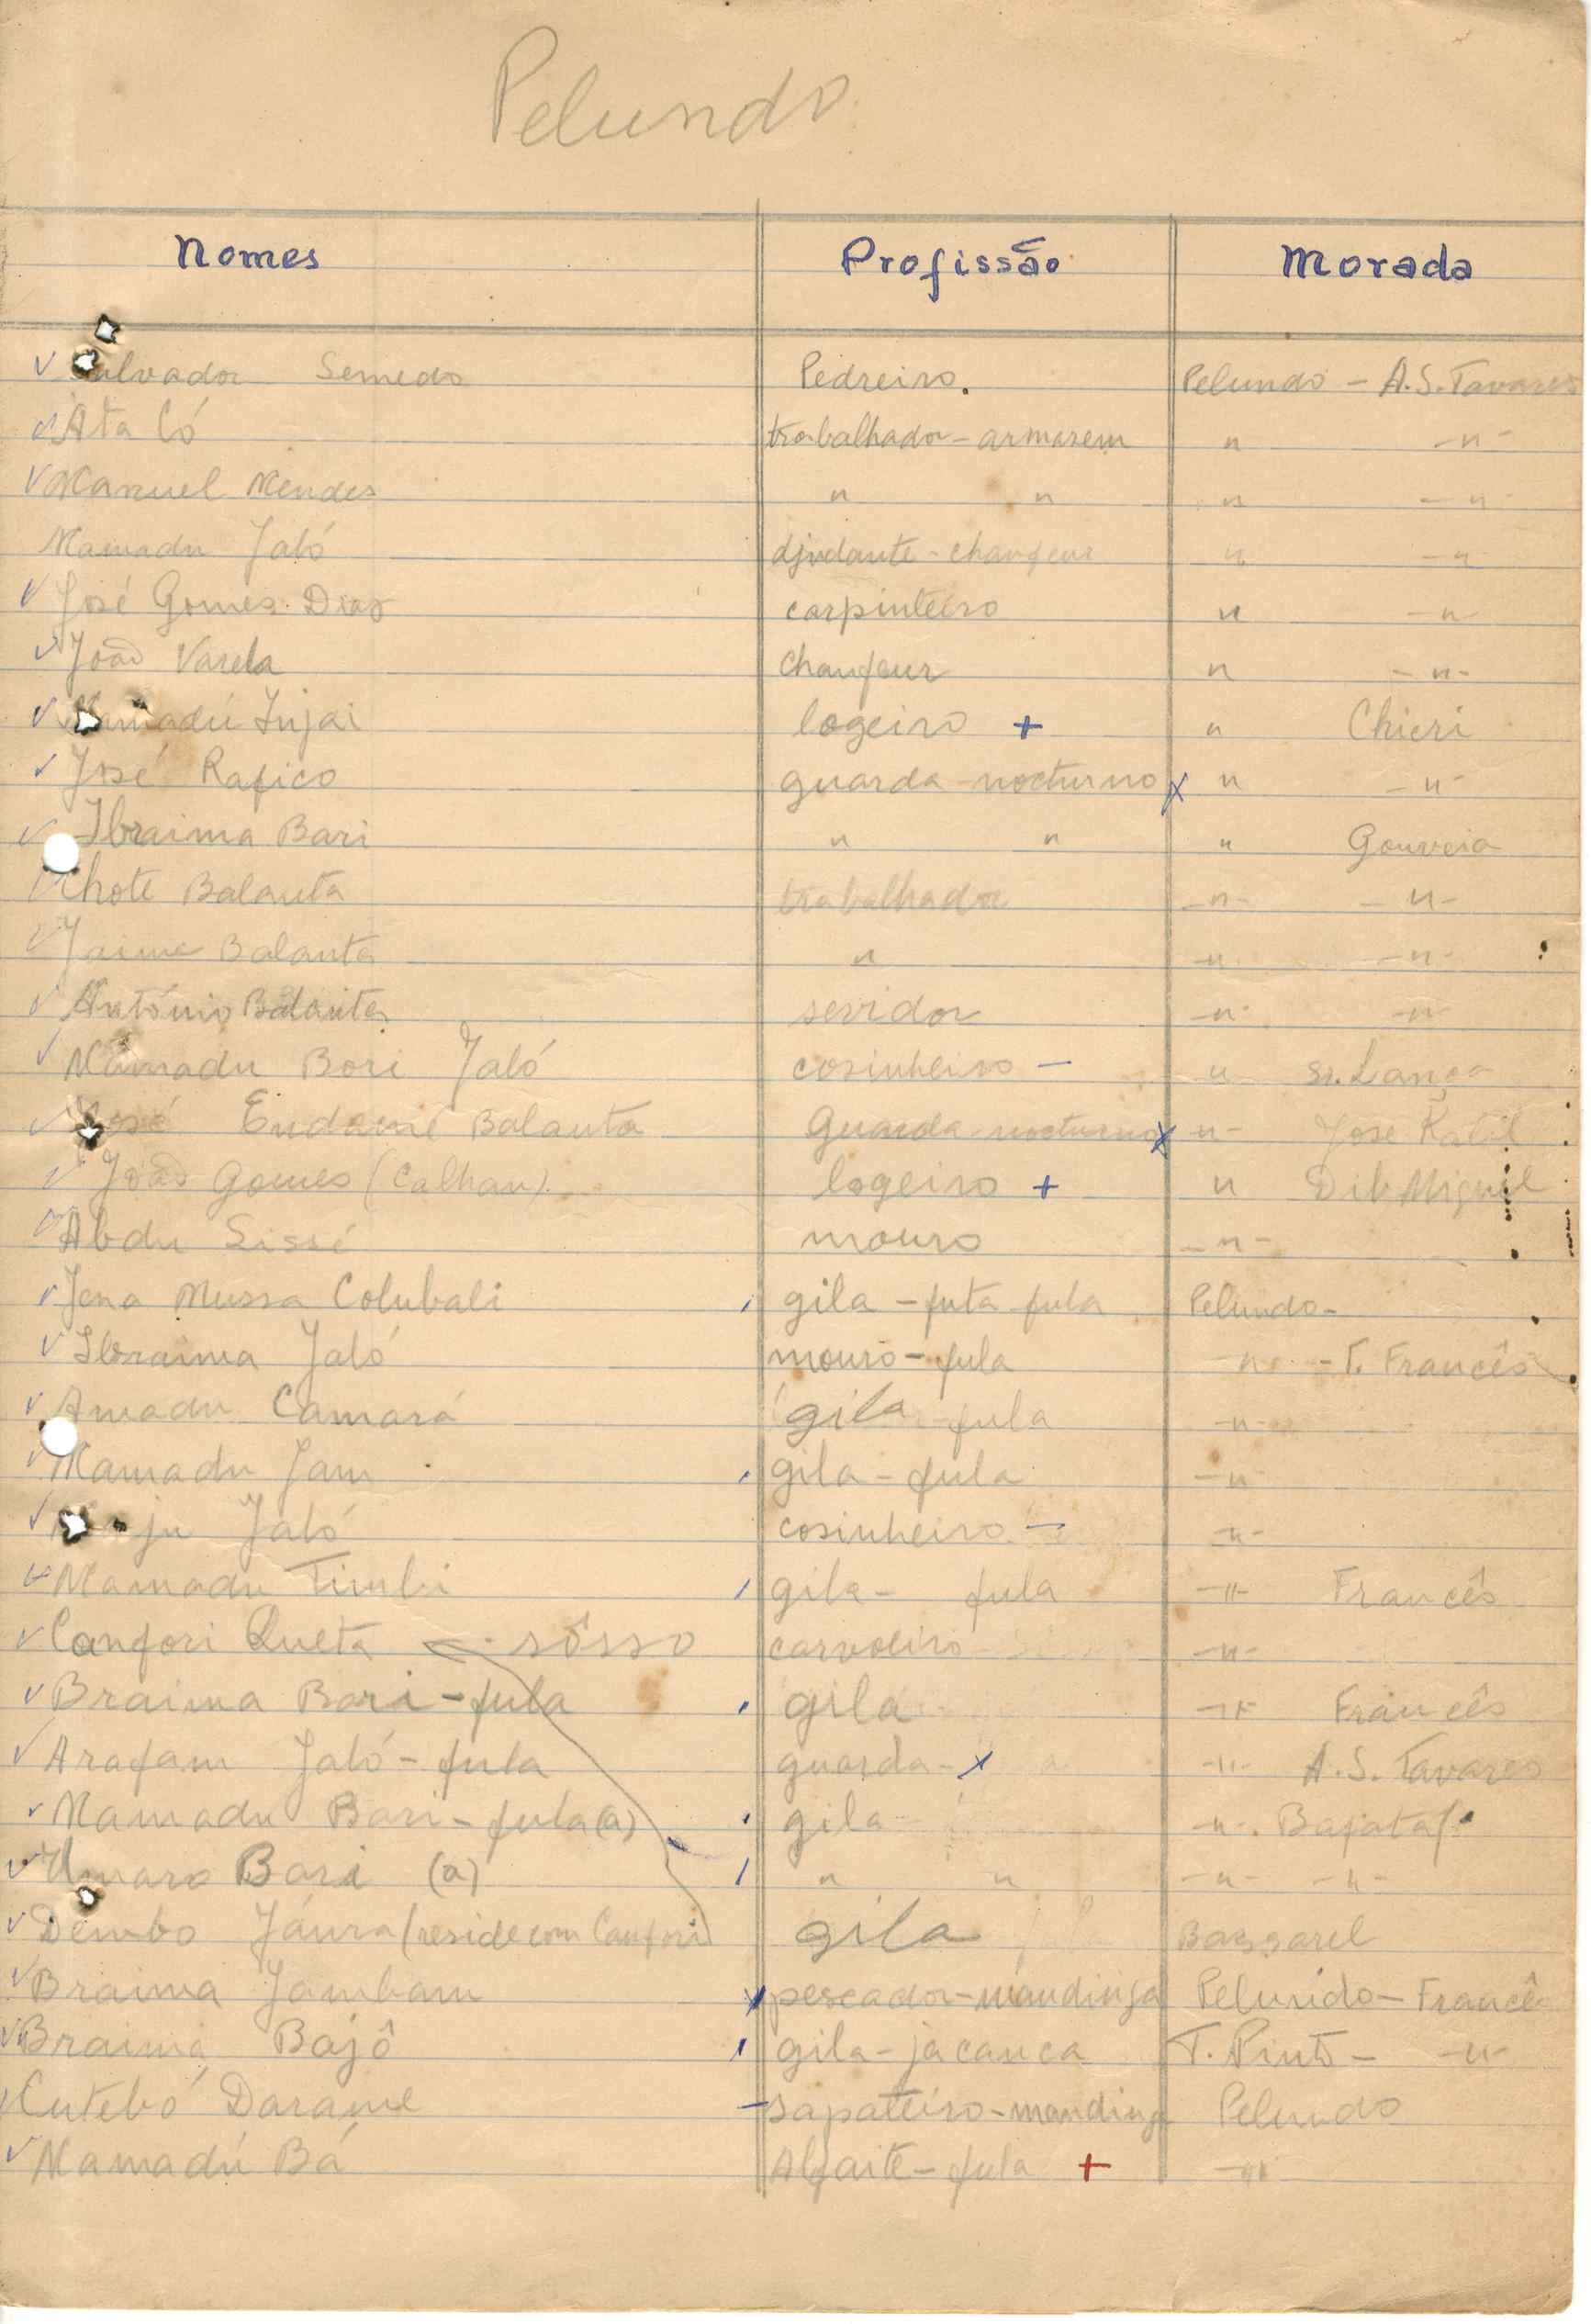 Pelundo
Nomes Profissão Morada
Salvador Semedo Pedreiro. Pelundo - A.S. Tavares
Ata Có trabalhador - armasem " -"-
Manuel Mendes " " " -"-
Mamadu Jaló djudante - chaufeur " -"
José Gomes Dias carpinteiro " -"-
João Varela Chaufeur " -"-
Mamadú Injai logeiro + " Chieri
José Rafico guarda-nocturno x " -"-
Ibraima Bari " " " Gouveia
Chote Balanta trabalhador -"- -"-
Jaime Balanta " -"- -"-
António Balanta servidor -"- -"-
Mamadu Bori Jaló cosinheiro - " Sr. Lança
José Balanta Guarda-nocturno x "- José Kalil
João Gomes (Calhau) logeiro + " Dib Miguel
Abdu Sissé mouro -"-
Jena Mussa Colubali gila - futa fula Pelundo -
Ibraima Jaló mouro - fula -"- - T. Francês
Amadu Camará gila fula -"-
Mamadu Jam gila - fula -"-
ju Jaló cosinheiro - -"-
Mamadu Timbi gila - fula -"- Francês
Canfori Queta sôsso carvoeiro -"-
Braima Bari - fula gila -"- Francês
Arafam Jaló - fula guarda - x -"- A.S. Tavares
Mamadu Bari - fula (a) gila -"-
Umaro Bari (a) " " -"- -"-
Dembo Jáura (reside com Canfori) gila Bassarel
Braima Jambam pescador - mandinga Pelundo - Francê
Braima Bajô gila - jacanca T. Pinto - -"-
Cutebó Darame sapateiro - manding Pelundo
Mamadú Bá Alfaite - fula + -"